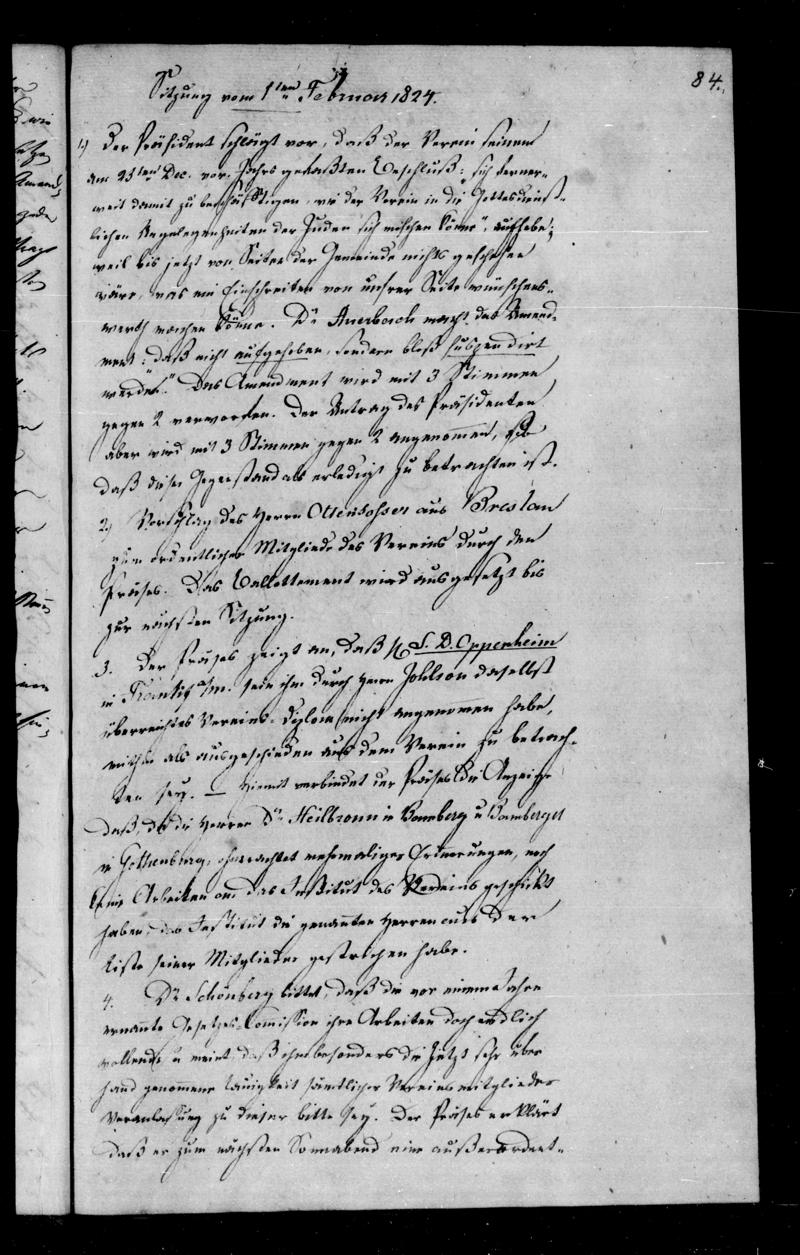 84.
Sitzung vom 1ten Februar 1824.
1.) Der Präsident schlägt vor, daß der Verein seinen
am 23ten Dec. vor. Jahrs gefaßten Beschluß: „sich ferner-
weit damit zu beschäftigen, wie der Verein in die Gottesdienst-
lichen Angelegenheiten der Juden sich mischen könne", aufhebe;
weil bis jetzt von Seiten der Gemeinde nichts geschehen
wäre, was ein Einschreiten von unsrer Seite wünschens-
werth machen könne. Dr Auerbach macht das Amend-
ment: „daß nicht aufgehoben, sondern bloß suspendirt
werde." Das Amendment wird mit 3 Stimmen
gegen 2 verworfen. Der Antrag des Präsidenten
aber wird mit 3 Stimmen gegen 2 angenommen, so
daß dieser Gegenstand als erledigt zu betrachten ist.
2.) Vorschlag des Herrn Ottensosser aus Breslau
zum ordentlichen Mitgliede des Vereins durch den
Präses. Das Ballottement wird ausgesetzt bis
zur nächsten Sitzung.
3. Der Präses zeigt an, daß H. S. D. Oppenheim
in Frankft a/m. sein ihm durch Herrn Johlson daselbst
überreichtes Vereins-Diplom nicht angenommen habe,
mithin als ausgeschieden aus dem Verein zu betrach-
ten sey. — Hiemit verbindet der Präses die Anzeige
daß, da die Herren Dr Heilbronn in Bamberg u Bamberger
in Gothenburg, ohnerachtet mehrmaliger Erinnerungen, noch
keine Arbeiten an das Institut des Vereins geschickt
haben, das Institut die genannten Herren aus der
Liste seiner Mitglieder gestrichen habe.
4. Dr Schönberg bittet, daß die vor einem Jahre
ernannte Gesetzes-Comission ihre Arbeiten doch endlich
vollende, u meint, daß ihm besonders die jetzt sehr über
hand genommene Lauigkeit sämtlicher Vereinsmitglieder
Veranlassung zu dieser Bitte sey. Der Präses erklärt
daß er zum nächsten Sonnabend eine außerordent-